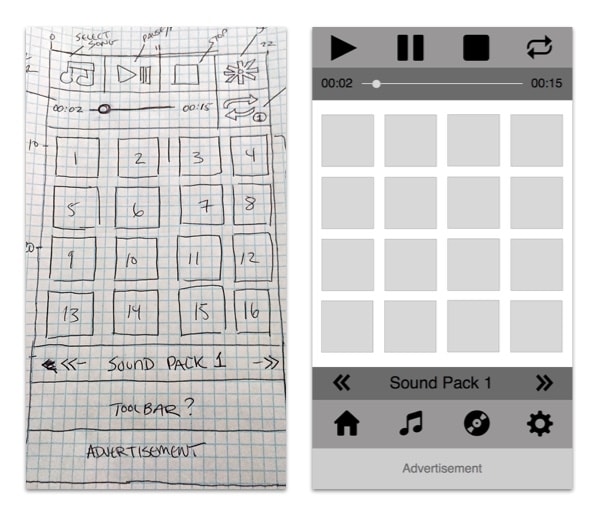 0
SELECT SONG
PAUSE/
STOP
11
22
00:02 00:15
1
10
1 2 3 4
5 6 7 8
9 10 11 12
13 14 15 16
SOUND PACK 1
TOOLBAR?
ADVERTISEMENT
00:02 00:15
Sound Pack 1
Advertisement